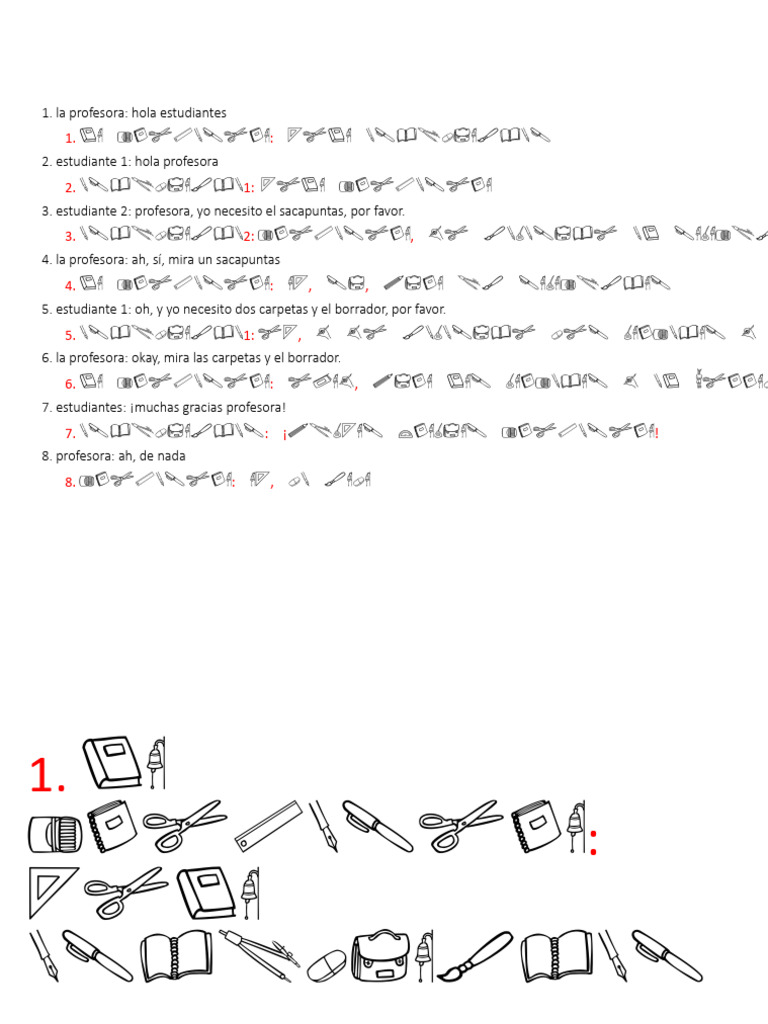 1. la profesora: hola estudiantes
1. :
2. estudiante 1: hola profesora
2. 1:
3. estudiante 2: profesora, yo necesito el sacapuntas, por favor.
3. 2: ,
4. la profesora: ah, sí, mira un sacapuntas
4. : , ,
5. estudiante 1: oh, y yo necesito dos carpetas y el borrador, por favor.
5. 1: ,
6. la profesora: okay, mira las carpetas y el borrador.
6. : ,
7. estudiantes: ¡muchas gracias profesora!
7. : ¡ !
8. profesora: ah, de nada
8. : ,
1.
: